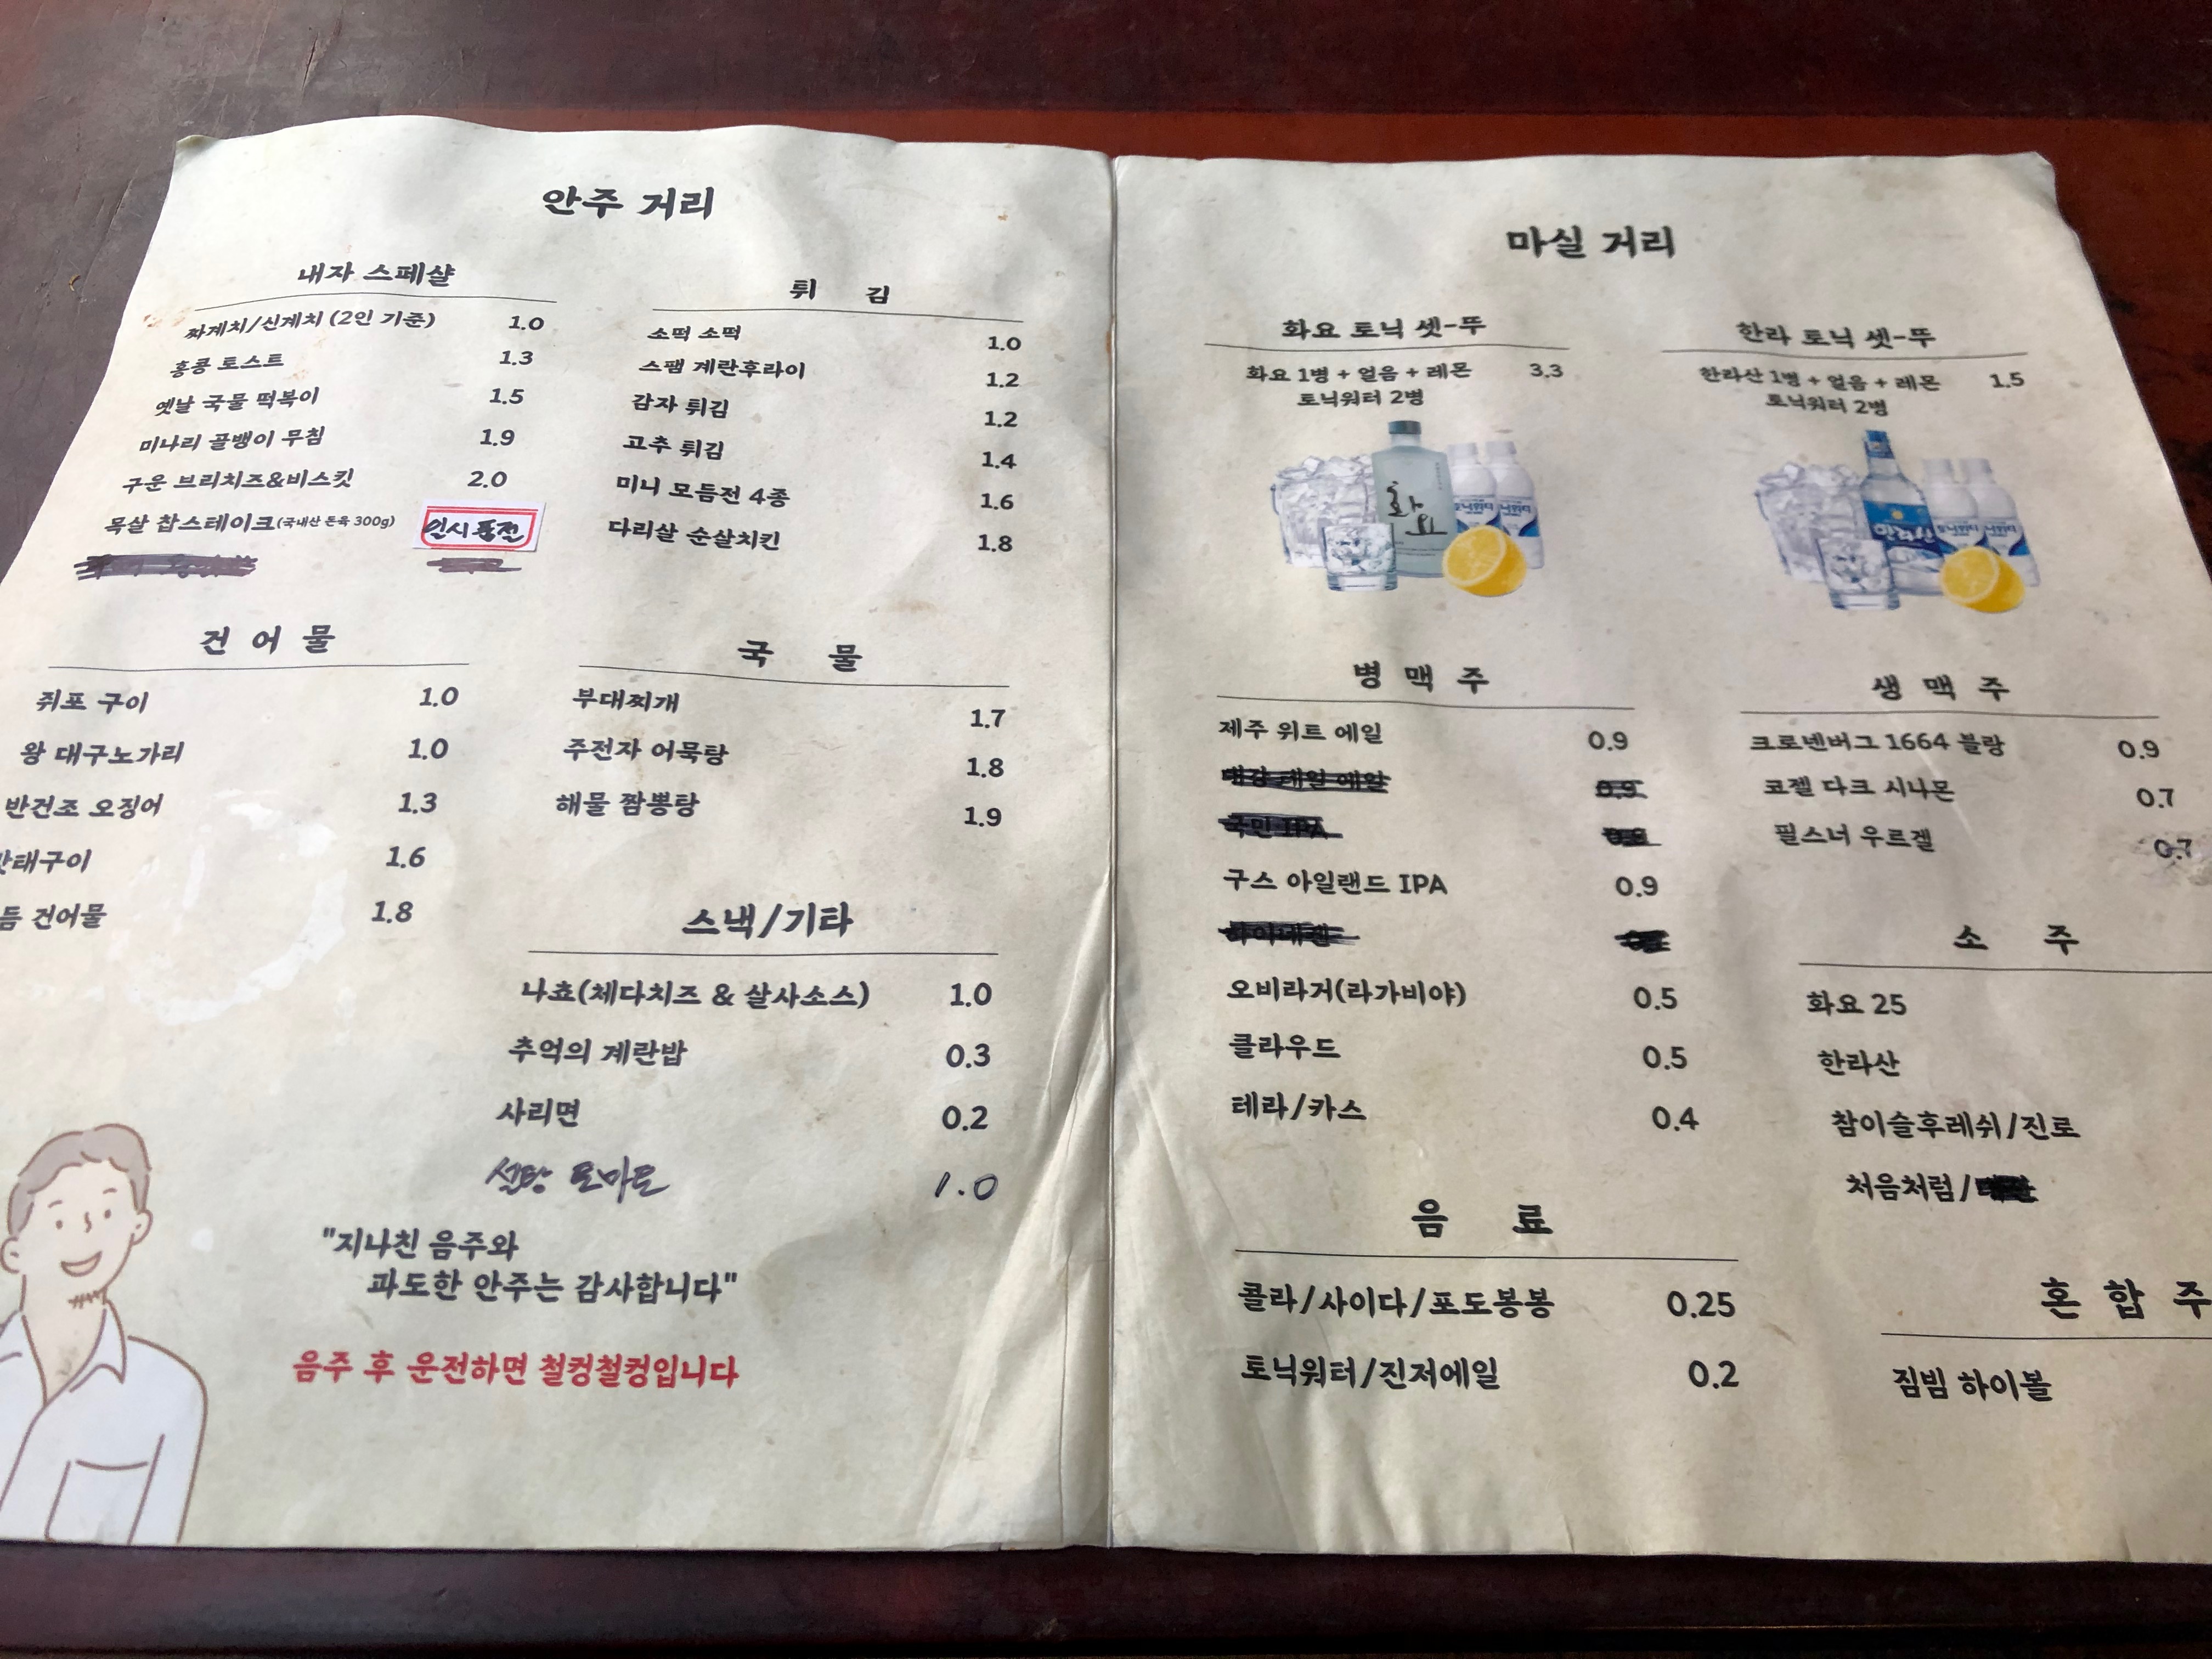 안주 거리
내자 스페샬
짜계치/신계치 (2인 기준) 1.0
홍콩 토스트 1.3
옛날 국물 떡복이 1.5
미나리 골뱅이 무침 1.9
구운 브리치즈&비스킷 2.0
목살 찹스테이크(국내산 돈육 300g) 일시품절
튀 김
소떡 소떡 1.0
스팸 계란후라이 1.2
감자 튀김 1.2
고추 튀김 1.4
미니 모듬전 4종 1.6
다리살 순살치킨 1.8
건 어 물
쥐포 구이 1.0
왕 대구노가리 1.0
반건조 오징어 1.3
태구이 1.6
듬 건어물 1.8
국 물
부대찌개 1.7
주전자 어묵탕 1.8
해물 짬뽕탕 1.9
스낵/기타
나쵸(체다치즈 & 살사소스) 1.0
추억의 계란밥 0.3
사리면 0.2
설탕 토마토 1.0
"지나친 음주와
과도한 안주는 감사합니다"
음주 후 운전하면 철컹철컹입니다
마실 거리
화요 토닉 셋-뚜
화요 1병 + 얼음 + 레몬 3.3
토닉워터 2병
화요
토닉워터
한라 토닉 셋-뚜
한라산 1병 + 얼음 + 레몬 1.5
토닉워터 2병
한라산
토닉워터
병 맥 주
제주 위트 에일 0.9
0.9
국민 IPA
구스 아일랜드 IPA 0.9
오비라거(라가비야) 0.5
클라우드 0.5
테라/카스 0.4
생 맥 주
크로넨버그 1664 블랑 0.9
코젤 다크 시나몬 0.7
필스너 우르겔 0.7
소 주
화요 25
한라산
참이슬후레쉬/진로
처음처럼/
음 료
콜라/사이다/포도봉봉 0.25
토닉워터/진저에일 0.2
혼 합 주
짐빔 하이볼